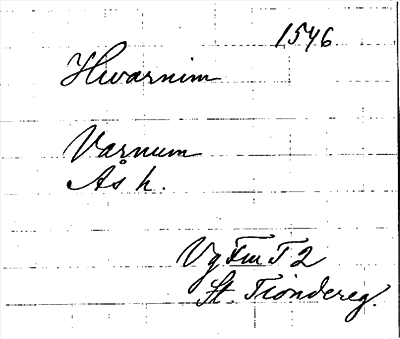 1546
Hwarnim
Varnum
Ås h.
Vg FmT 2
St. Tiondereg.